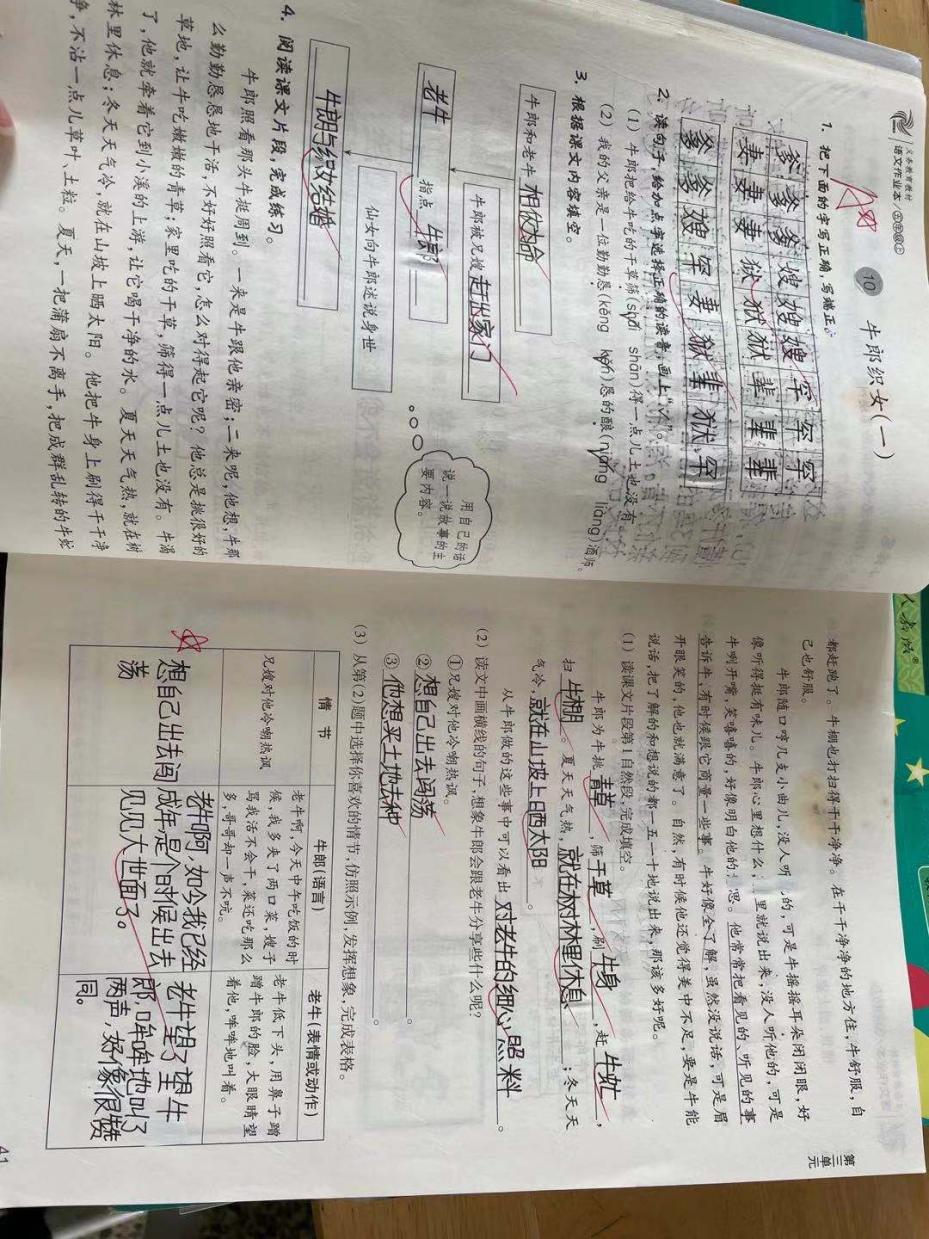 义务教育教材
语文作业本
10 牛郎织女(一)
1. 把下面的字写正确,写端正。
爹 爹 爹 嫂 嫂 嫂 罕 罕 罕
妻 妻 妻 狱 狱 狱 辈 辈 辈
爹 爹 嫂 罕 妻 狱 辈 狱 罕
2. 读句子,给加点字选择正确的读音,画上“√”。
(1) 牛郎把给牛吃的干草筛(sāi shāi)得一点儿土也没有。
(2) 我的父亲是一位勤勤恳(kěng kěn)恳的酿(niàng liàng)酒师。
3. 根据课文内容填空。
牛郎和老牛 相依为命
牛郎被兄嫂 赶出家门
老牛 指点 牛郎
仙女向牛郎述说身世
牛郎与织女结婚
用自己的话
说一说故事的主
要内容。
4. 阅读课文片段,完成练习。
牛郎照看那头牛挺周到。一来是牛跟他亲密;二来呢,他想,牛那
么勤勤恳恳地干活,不好好照看它,怎么对得起它呢?他总是挑很好的
草地,让牛吃嫩嫩的青草;家里吃的干草,筛得一点儿土也没有。牛渴
了,他就牵着它到小溪的上游,让它喝干净的水。夏天天气热,就在树
林里休息;冬天天气冷,就在山坡上晒太阳。他把牛身上刷得干干净
净,不沾一点儿草叶、土粒。夏天,一把蒲扇不离手,把成群乱转的牛虻
都赶跑了。牛棚也打扫得干干净净。在干干净净的地方住,牛舒服,自
己也舒服。
牛郎随口哼几支小曲儿,没人听 的,可是牛摇摇耳朵闭闭眼,好
像听得挺有味儿。牛郎心里想什么, 里就说出来,没人听他的,可是
牛咧开嘴,笑嘻嘻的,好像明白他的 思。他常常把看见的、听见的事
告诉牛,有时候跟它商量一些事。牛好像全了解,虽然没说话,可是眉
开眼笑的,他也就满意了。自然,有时候他还觉得美中不足,要是牛能
说话,把了解的和想说的都一五一十地说出来,那该多好呢。
(1) 读课文片段第1自然段,完成填空。
牛郎为牛挑 青草 ,筛 干草 ,刷 牛身 ,赶 牛虻 ,
扫 牛棚 。夏天天气热, 就在树林里休息 ;冬天天
气冷, 就在山坡上日西太阳 。
从牛郎做的这些事中可以看出 对老牛的细心照料 。
(2) 读文中画横线的句子,想象牛郎会跟老牛分享些什么呢?
①兄嫂对他冷嘲热讽。
② 想自己出去闯荡 。
③ 他想买土地去种 。
(3) 从第(2)题中选择你喜欢的情节,仿照示例,发挥想象,完成表格。
情 节 牛郎(语言) 老牛(表情或动作)
兄嫂对他冷嘲热讽
老牛啊,今天中午吃饭的时
候,我多夹了两口菜,嫂子
骂我活不会干,菜还吃那么
多,哥哥却一声不吭。
老牛低下头,用鼻子蹭
蹭牛郎的脸,大眼睛望
着他,哞哞地叫着。
想自己出去闯
荡
老牛啊,如今我已经
成年,是个时候出去
见见大世面了。
老牛望了望牛
郎,哞哞地叫了
两声,好像很赞
同。
第三单元
41